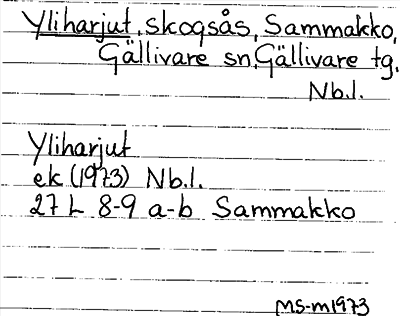 Yliharjut, skogsås, Sammakko,
Gällivare sn, Gällivare tg.
Nb.l.
Yliharjut
ek (1973) Nb.l.
27 L 8-9 a-b Sammakko
MS-m1973